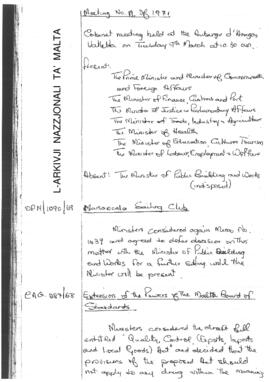 Meeting No. 11 of 1971
Cabinet meeting held at the Auberge d'Aragon
Valletta on Tuesday 9th March at 10.30 am.
Present:
The Prime Minister and Minister of Commonwealth
and Foreign Affairs
The Minister of Finance Customs and Port
The Minister of Justice & Parliamentary Affairs
The Minister of Trade, Industry & Agriculture
The Minister of Health
The Minister of Education Culture Tourism
The Minister of Labour, Employment & Welfare
Absent: The Minister of Public Building and Works
(indisposed)
L-ARKIVJI NAZZJONALI TA' MALTA
OPM/1090/68 Marsascala Sailing Club
Ministers considered again Memo No.
1439 and agreed to defer decision on this
matter with the Minister of Public Building
and Works for a further sitting until the
Minister will be present.
Extension of the Powers of the Malta Board of
Standards
Ministers considered the already full
entitled "Quality Control (Exports, Imports
and Local Goods) Act" and decided that the
provisions of the proposed Act should
not apply to any drug within the meaning